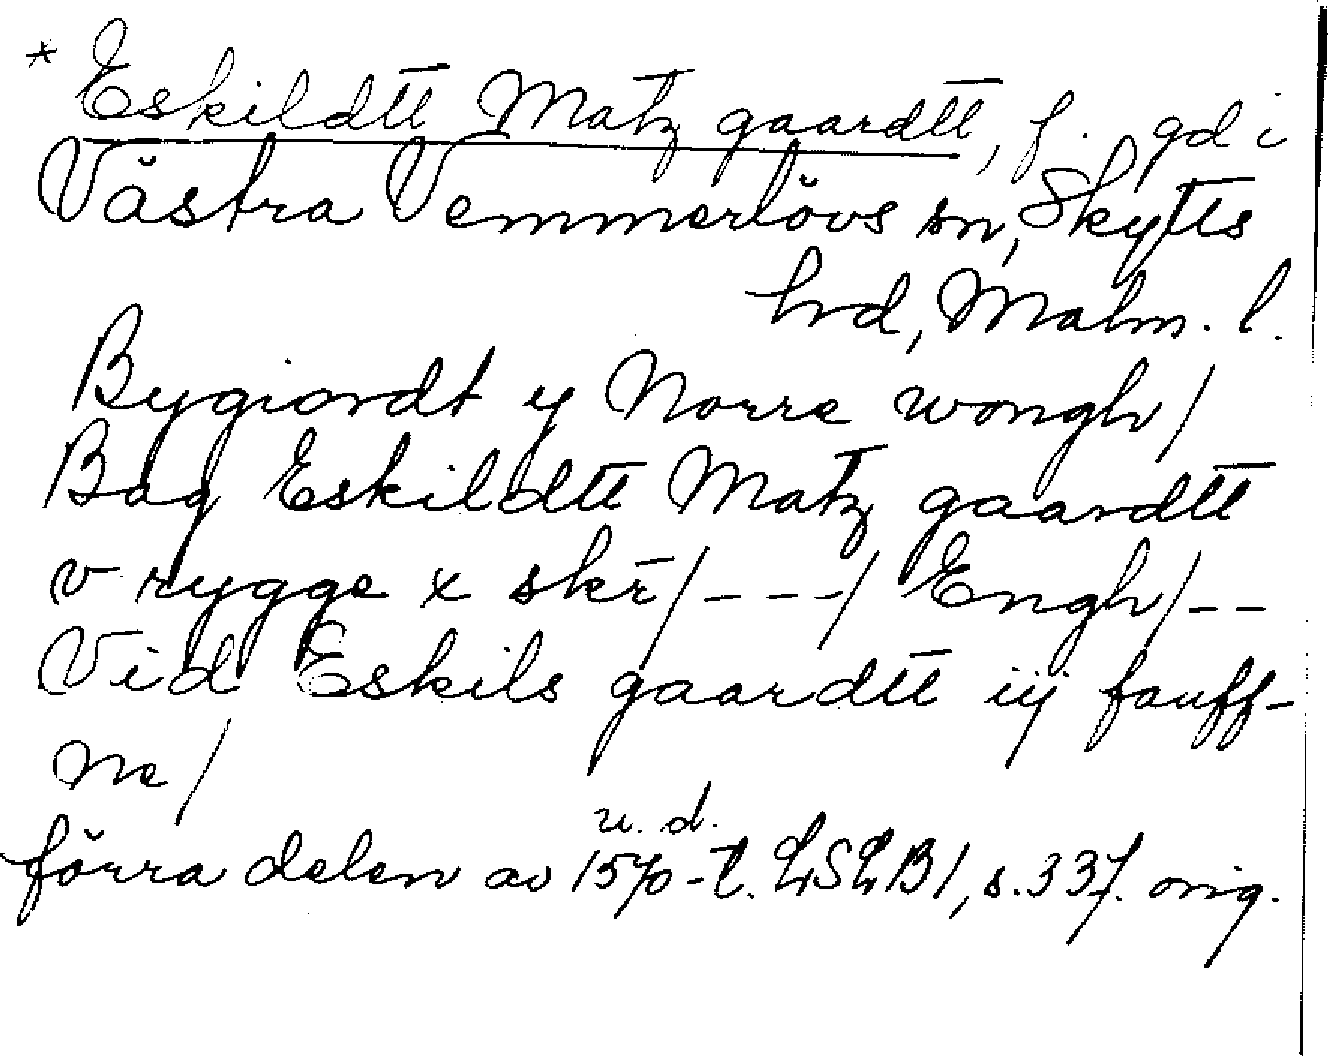 * Eskildtt Matz gaardtt, f. gd i
Västra Vemmerlövs sn, Skytts
hrd, Malm. l.
Bygiordt y Norre wongh/
Bag Eskildtt Matz gaardtt
v rygge x skr̄/---/ Engh/--
Vid Eskils gaardtt iij fauff-
ne/
u. d.
förra delen av 1570-t. LSLB1, s. 337. orig.